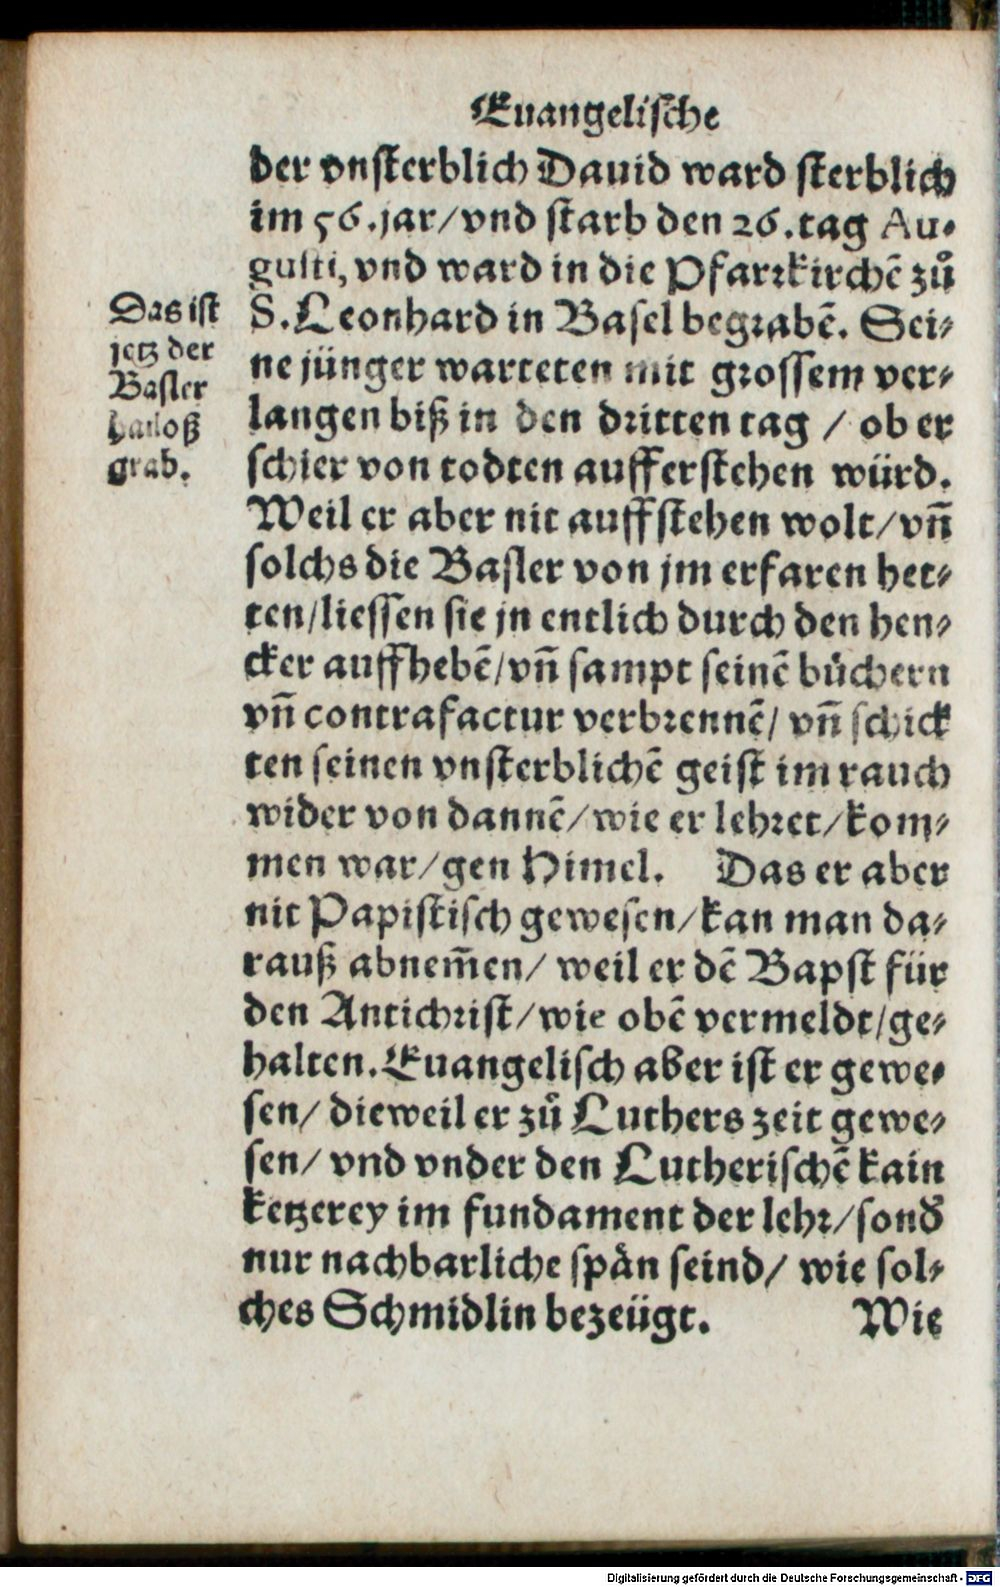 Euangelische
der vnsterblich Dauid ward sterblich
im 56.jar/vnd starb den 26.tag Au-
gusti, vnd ward in die Pfarrkirchē zů
S. Leonhard in Basel begrabē. Sei-
ne jünger warteten mit grossem ver-
langen biß in den dritten tag / ob er
schier von todten aufferstehen würd.
Weil er aber nit auffstehen wolt/vñ
solchs die Basler von jm erfaren het-
ten/liessen sie jn entlich durch den hen-
cker auffhebē/vñ sampt seinē bůchern
vñ contrafactur verbrennē/ vñ schick
ten seinen vnsterblichē geist im rauch
wider von dannē/wie er lehret/kom-
men war/gen Himel. Das er aber
nit Papistisch gewesen/kan man da-
rauß abnem̄en/ weil er dē Bapst für
den Antichrist/wie obē vermeldt/ge-
halten. Euangelisch aber ist er gewe-
sen/ dieweil er zů Luthers zeit gewe-
sen/ vnd vnder den Lutherischē kain
ketzerey im fundament der lehr/sond̄
nur nachbarliche spån seind/ wie sol-
ches Schmidlin bezeügt. Wie
Das ist
jetz der
Basler
hailoß
grab.
Digitalisierung gefördert durch die Deutsche Forschungsgemeinschaft - DFG